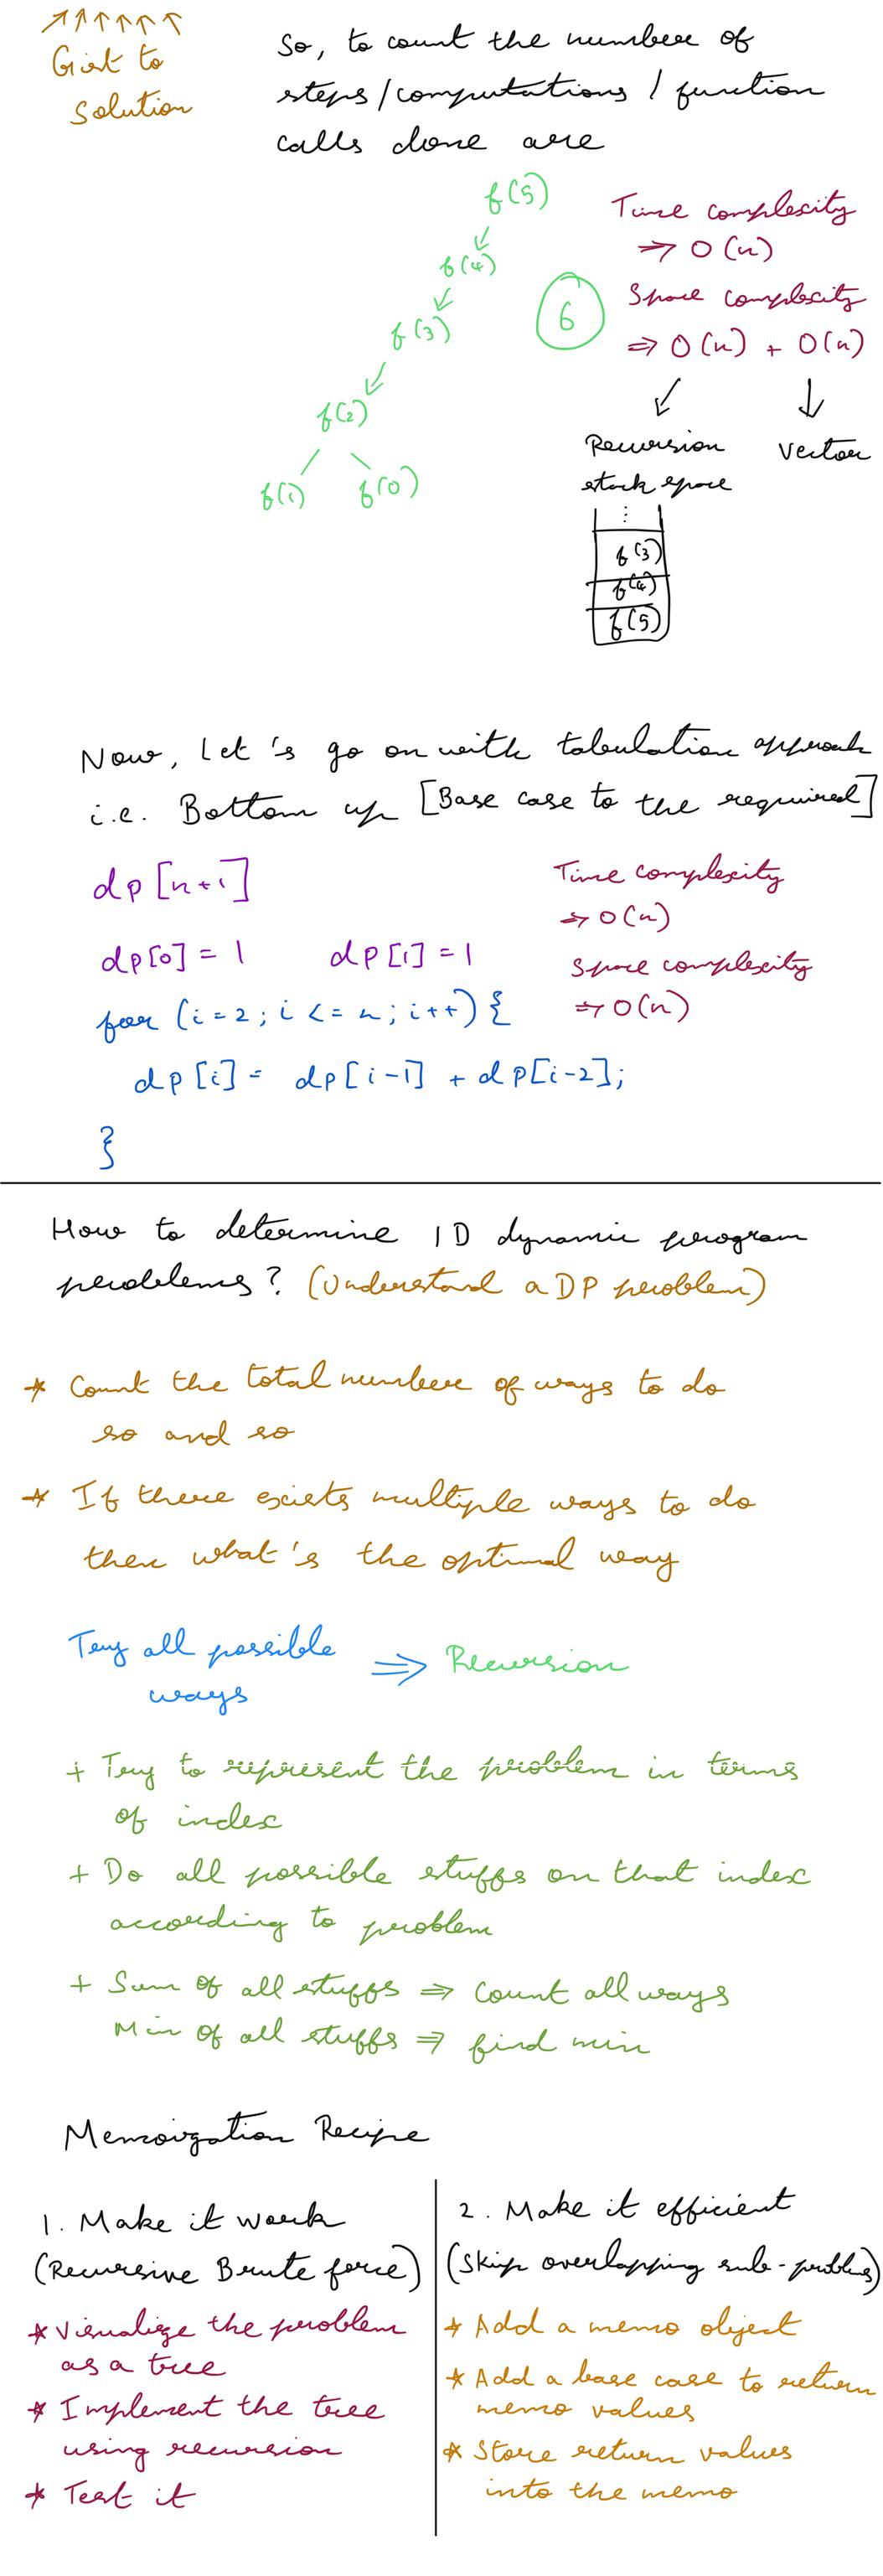 Gist to
Solution
So, to count the number of
steps/computations / function
calls done are
f(5)
f(4)
f(3)
f(2)
f(1) f(0)
6
Time complexity
⇒ O(n)
Space complexity
⇒ O(n) + O(n)
Recursion
stack space
Vector
⋮
f(3)
f(4)
f(5)
Now, Let's go on with tabulation approach
i.e. Bottom up [Base case to the required]
dp[n+1]
dp[0] = 1 dp[1] = 1
for (i=2; i <= n; i++) {
dp[i] = dp[i-1] + dp[i-2];
}
Time complexity
⇒ O(n)
Space complexity
⇒ O(n)
How to determine 1D dynamic program
problems? (Understand a DP problem)
* Count the total number of ways to do
so and so
* If there exists multiple ways to do
then what's the optimal way
Try all possible
ways
⇒ Recursion
+ Try to represent the problem in terms
of index
+ Do all possible stuffs on that index
according to problem
+ Sum of all stuffs ⇒ Count all ways
Min of all stuffs ⇒ find min
Memoization Recipe
1. Make it work
(Recursive Brute force)
* Visualize the problem
as a tree
* Implement the tree
using recursion
* Test it
2. Make it efficient
(Skip overlapping sub-problems)
* Add a memo object
* Add a base case to return
memo values
* Store return values
into the memo